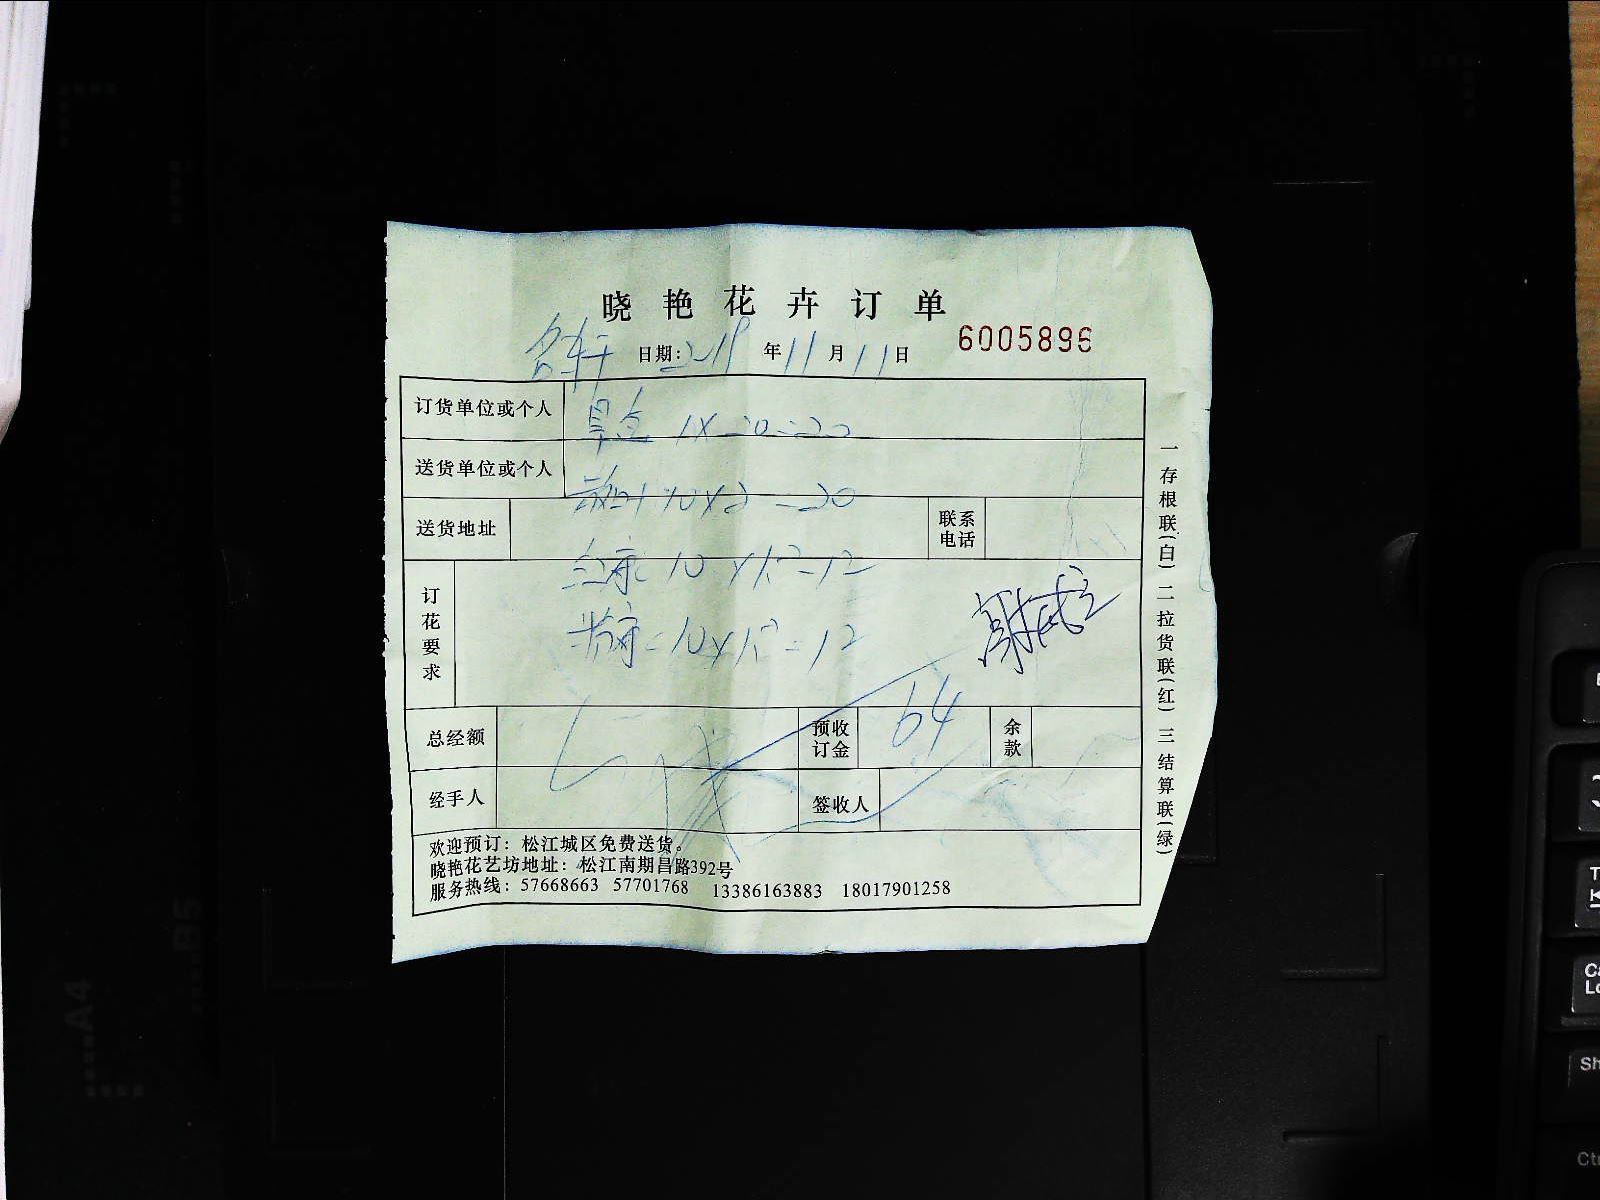 晓艳花卉订单
名轩 日期: 2019 年 11 月 11 日 6005896
订货单位或个人 1X20=20
送货单位或个人
10X2=20
送货地址 联系电话
10X1.2=12
订花要求 10X1.2=12
总经额 预收订金 64 余款
经手人 签收人
欢迎预订：松江城区免费送货。
晓艳花艺坊地址：松江南期昌路392号
服务热线：57668663 57701768 13386163883 18017901258
一存根联(白) 二拉货联(红) 三结算联(绿)
A4
B5